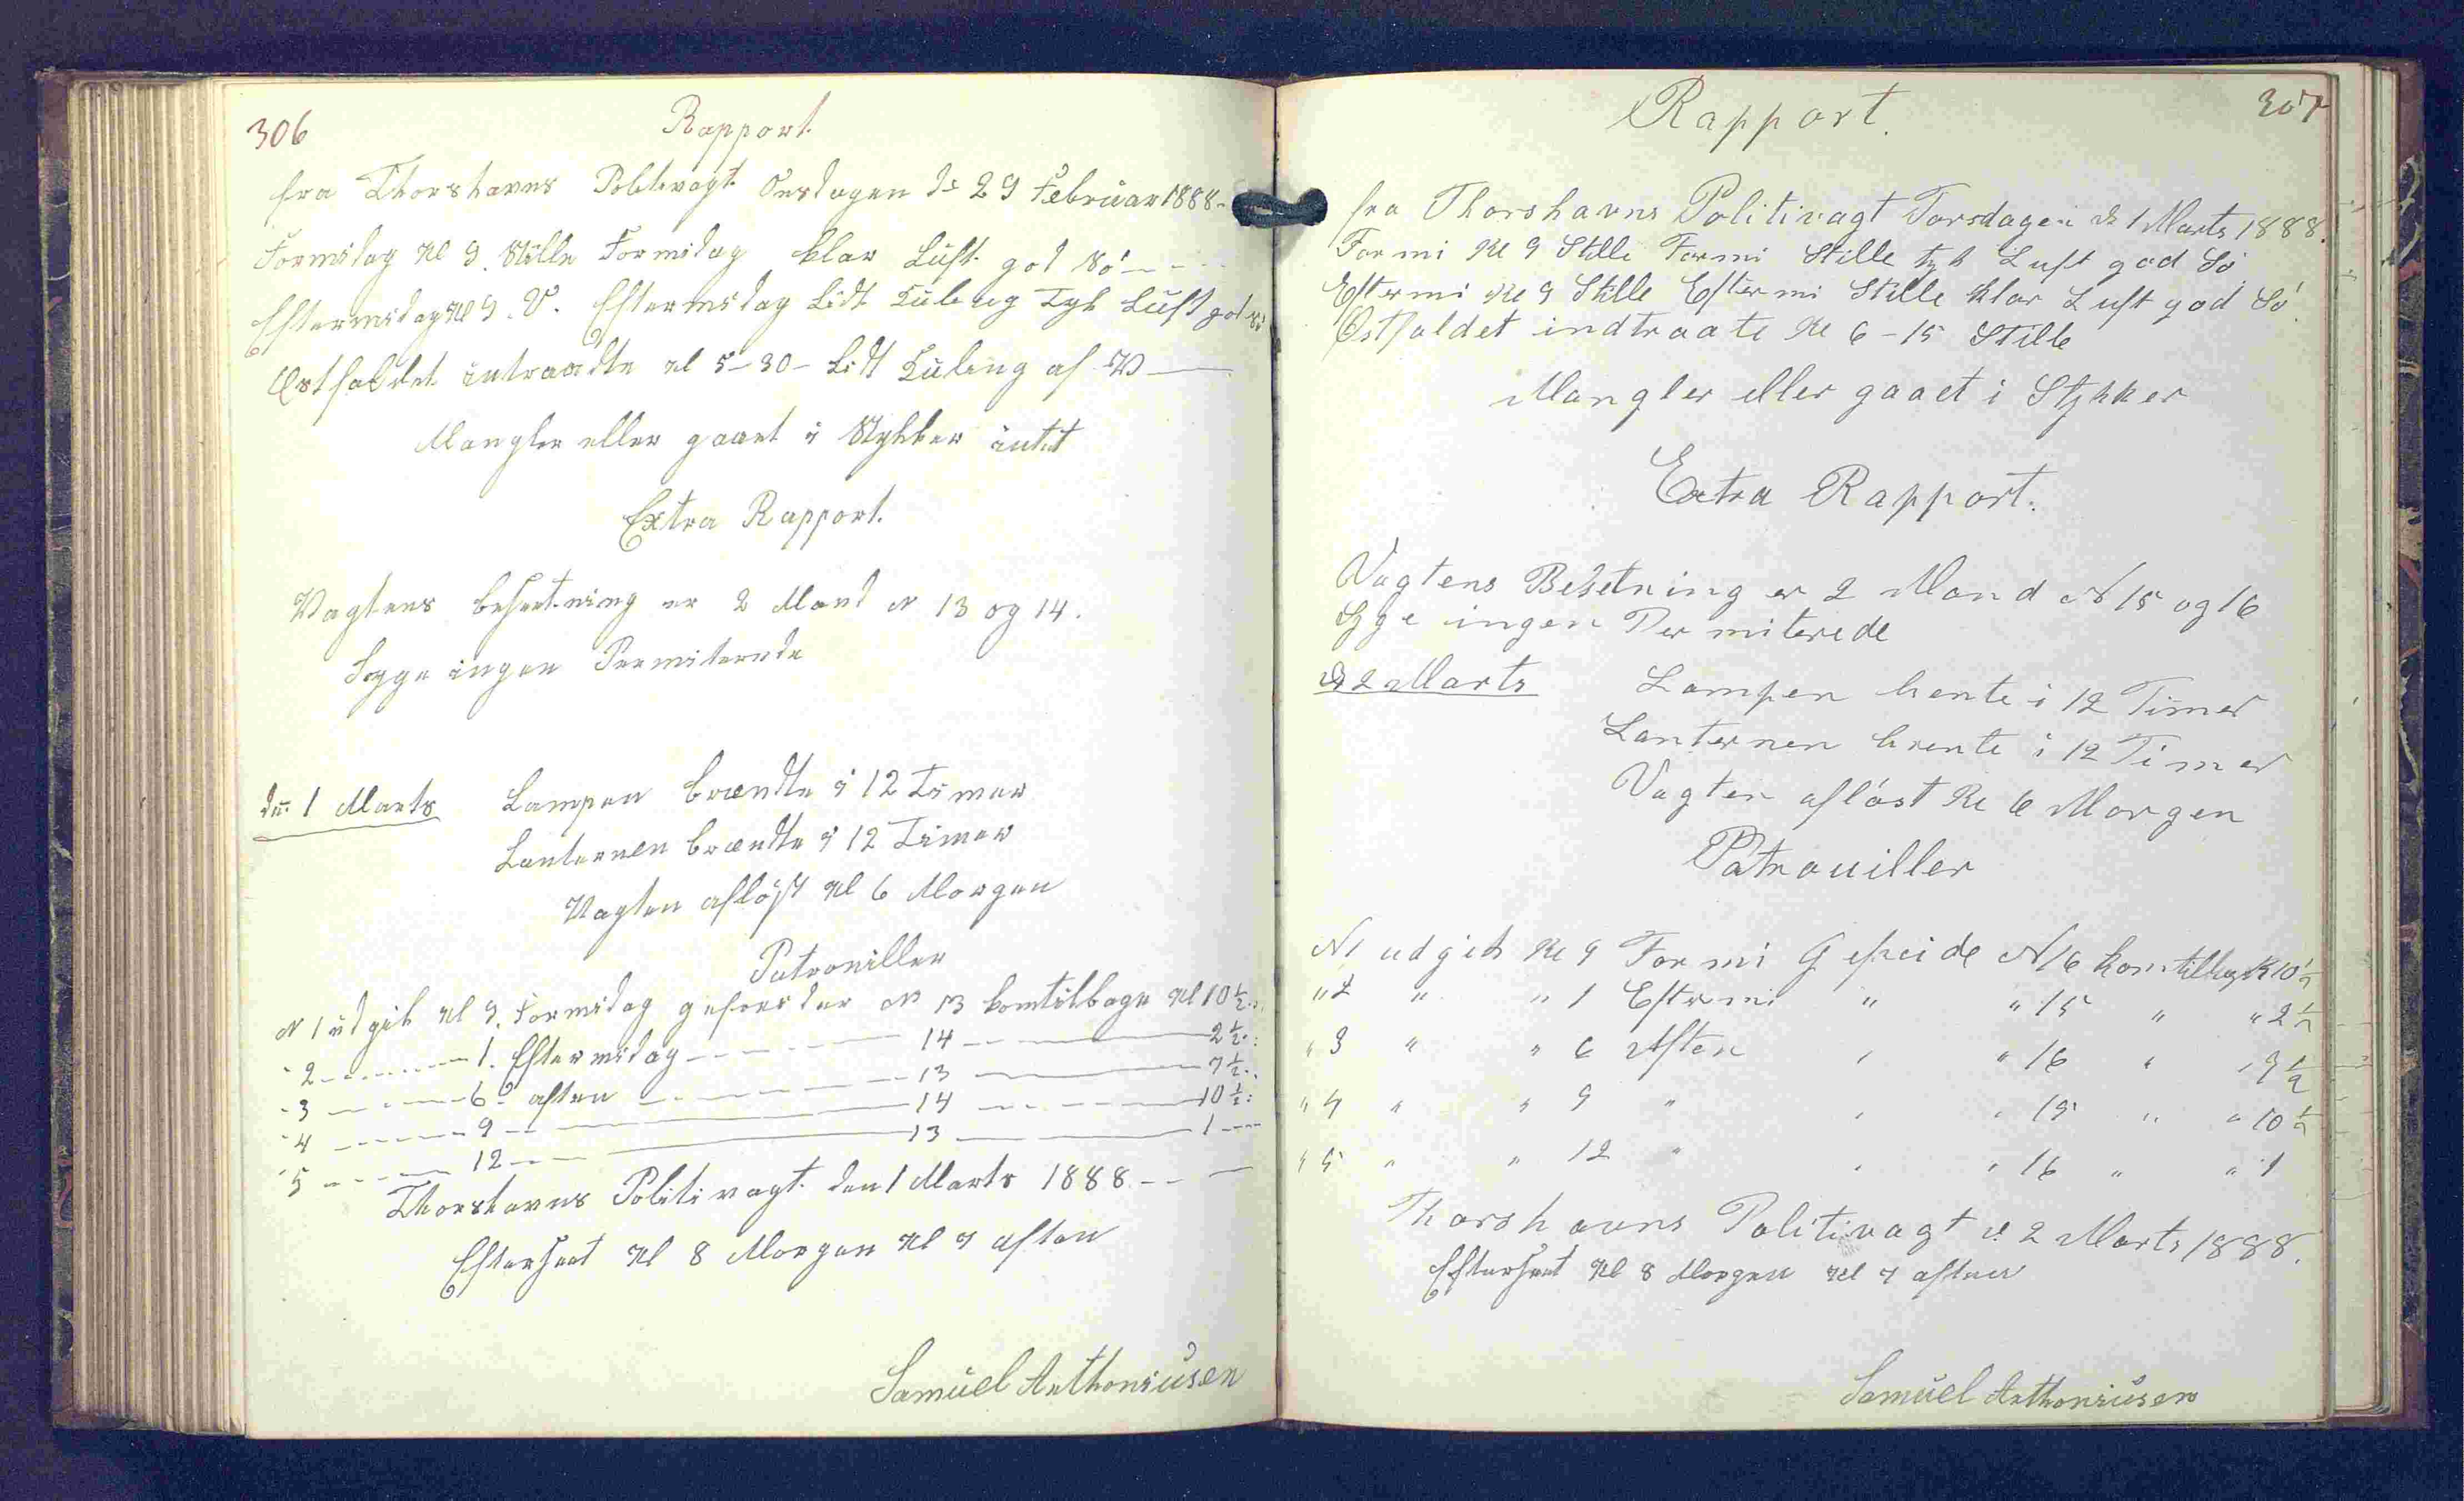 306
Rapport.
fra Thorshavns Politivagt Onsdagen d: 29 Februar 1888.
Formidag Kl 9. Stille Formidag klar Luft god Sö
Eftermidag Kl 9. V. Eftermidag Lidt Kuling Tyk Luft god Sö
Østfaldet intraadte Kl 5-30- Lidt Kuling af V
Mangler eller gaaet i Stykker intet
Extra Rapport.
Vagtens besætning er 2 Mand N 13 og 14.
Syge ingen Permiterede
den 1 Marts Lampen brændte i 12 Timer
Lanternen brændte i 12 Timer
Vagten aflöst Kl 6 Morgen
Patrouiller
N 1 udgik Kl 9. Formidag geforeider N 13 kom tilbage Kl 10 1/2
" 2 1. Eftermidag 14 2 1/2
" 3 6 aften 13 7 1/2
" 4 9 14 10 1/2
" 5 12 13 1
Thorshavns Politivagt den 1 Marts 1888
Efterseet Kl 8 Morgen Kl 7 aften
Samuel Anthoniusen
307
Rapport.
fra Thorshavns Politivagt Torsdagen d 1 Marts 1888.
Formi Kl 9 Stille Formi Stille tyk Luft god Sö
Eftermi Kl 9 Stille Eftermi Stille klar Luft god Sö.
Østfaldet indtraate Kl 6-15 Stille
Mangler eller gaaet i Stykker
Extra Rapport.
Vagtens Besetning er 2 Mand N 15 og 16
Syge ingen Permiterede
d 2 Marts Lampen brente i 12 Timer
Lanternen brente i 12 Timer
Vagten aflöst Kl 6 Morgen
Patrouiller
N 1 udgik Kl 9 Formi Gefreide N 16 kom tilbag Kl 10 1/2
" 2 " " 1 Eftermi " " 15 " " 2 1/2
" 3 " " 6 Aften " " 16 " " 7 1/2
" 4 " " 9 " " " 15 " " 10 1/2
" 5 " " 12 " " " 16 " " 1
Thorshavns Politivagt d. 2 Marts 1888.
Efterseet Kl 8 Morgen Kl 7 aften
Samuel Anthoniusen